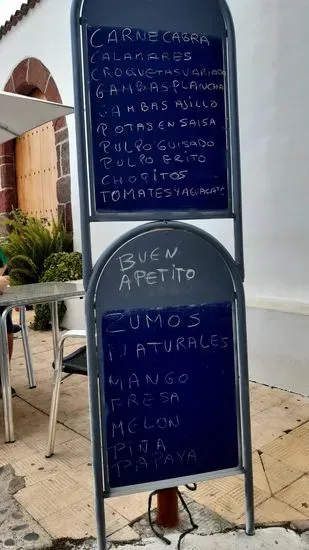 CARNE CABRA
CALAMARES
CROQUETAS VARIADO
GAMBAS PLANCHA
GAMBAS AJILLO
POTAS EN SALSA
PULPO GUISADO
PULPO FRITO
CHOPITOS
TOMATES Y AGUACATE
BUEN
APETITO
ZUMOS
NATURALES
MANGO
FRESA
MELON
PIÑA
PAPAYA